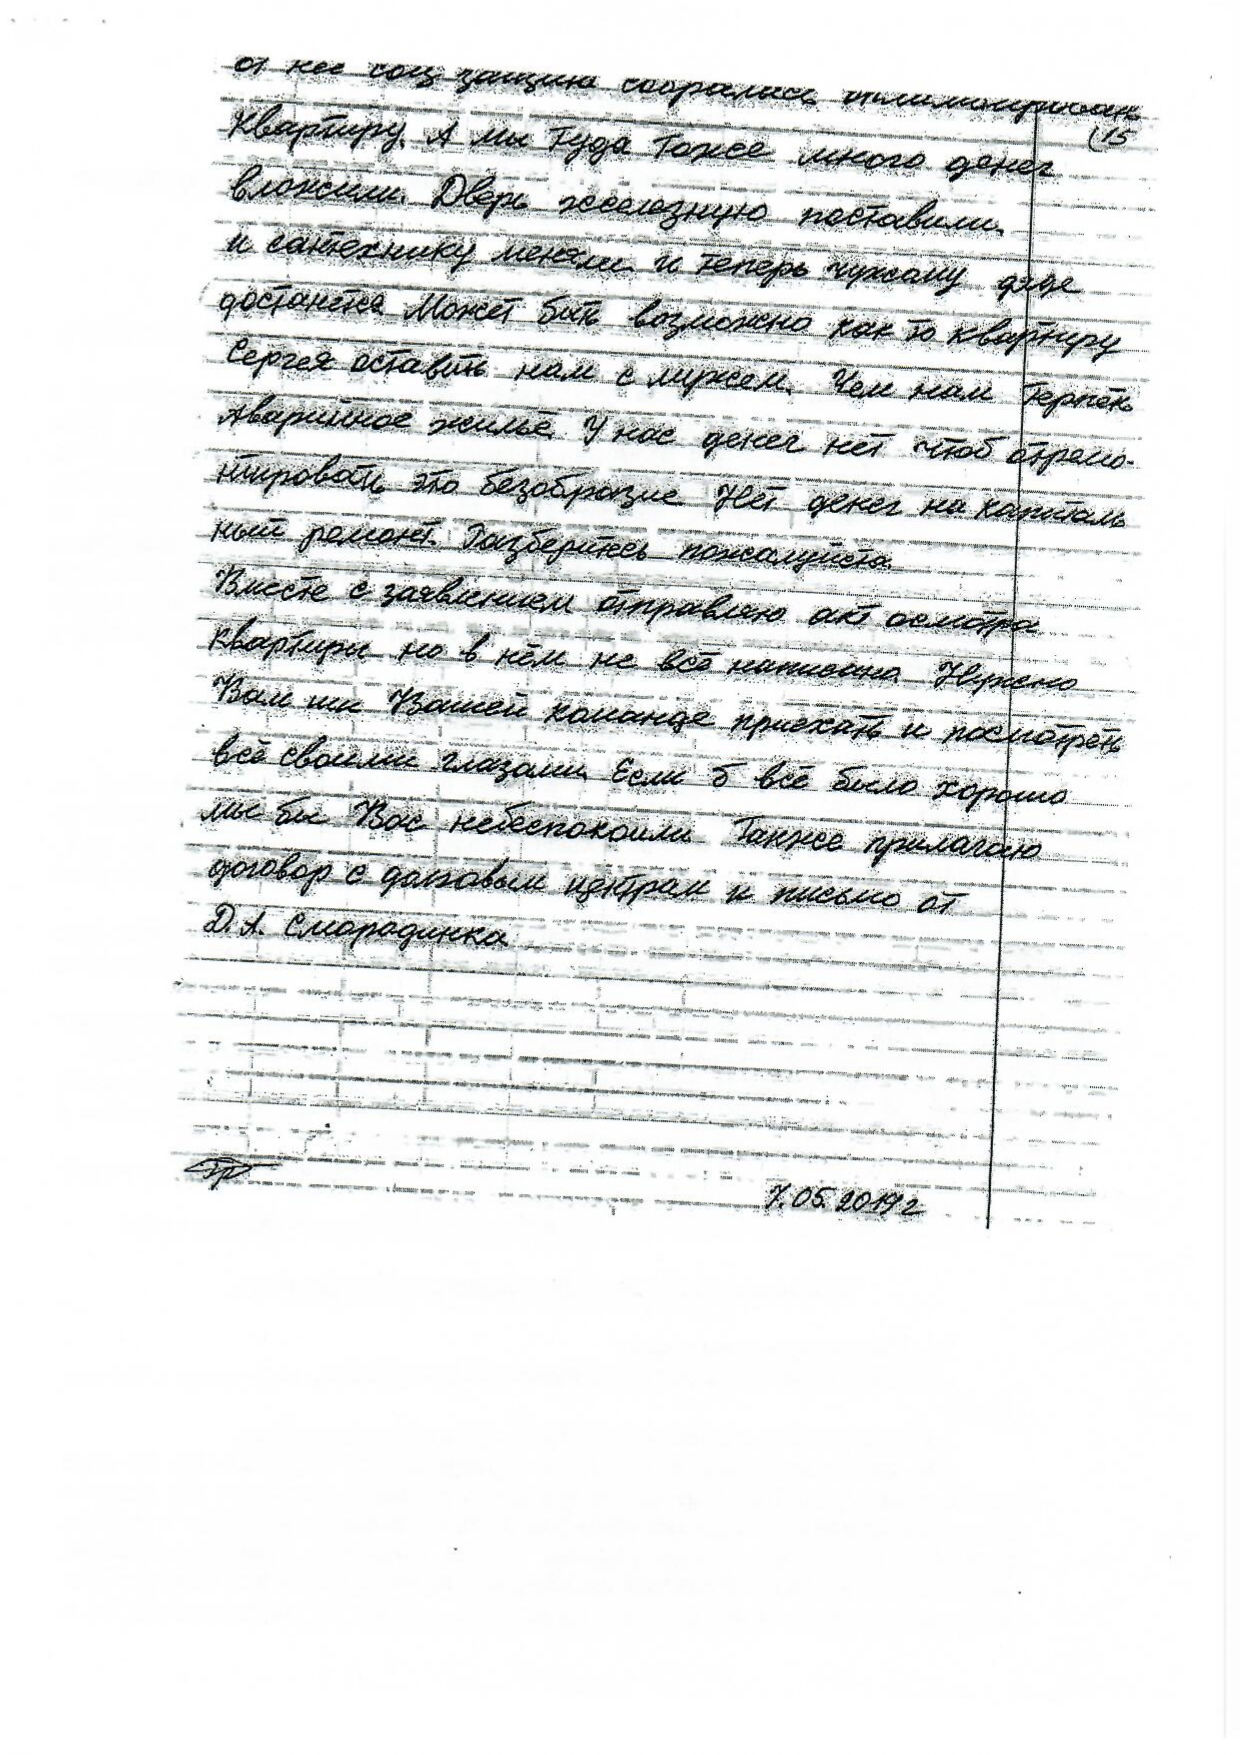 от неё соц защита собралась
(15
Квартиру. А мы туда тоже много денег
вложили. Дверь железную поставили.
и сантехнику меняли и теперь чужому дяде
достанется Может быть возможно как то квартиру
Сергея оставить нам с мужем. Чем нам терпеть
Аварийное жильё У нас денег нет чтоб отремо-
нтировать это безобразие Нет денег на капиталь
ный ремонт. Разберитесь пожалуйста.
Вместе с заявлением отправляю акт осмотра
Квартиры но в нём не всё написано Нужно
Вам или Вашей команде приехать и посмотреть
всё своими глазами Если б всё было хорошо
мы бы Вас небеспокоили Также прилагаю
договор с долговым центрам и письмо от
Д. А. Смородинка
7.05.2019г